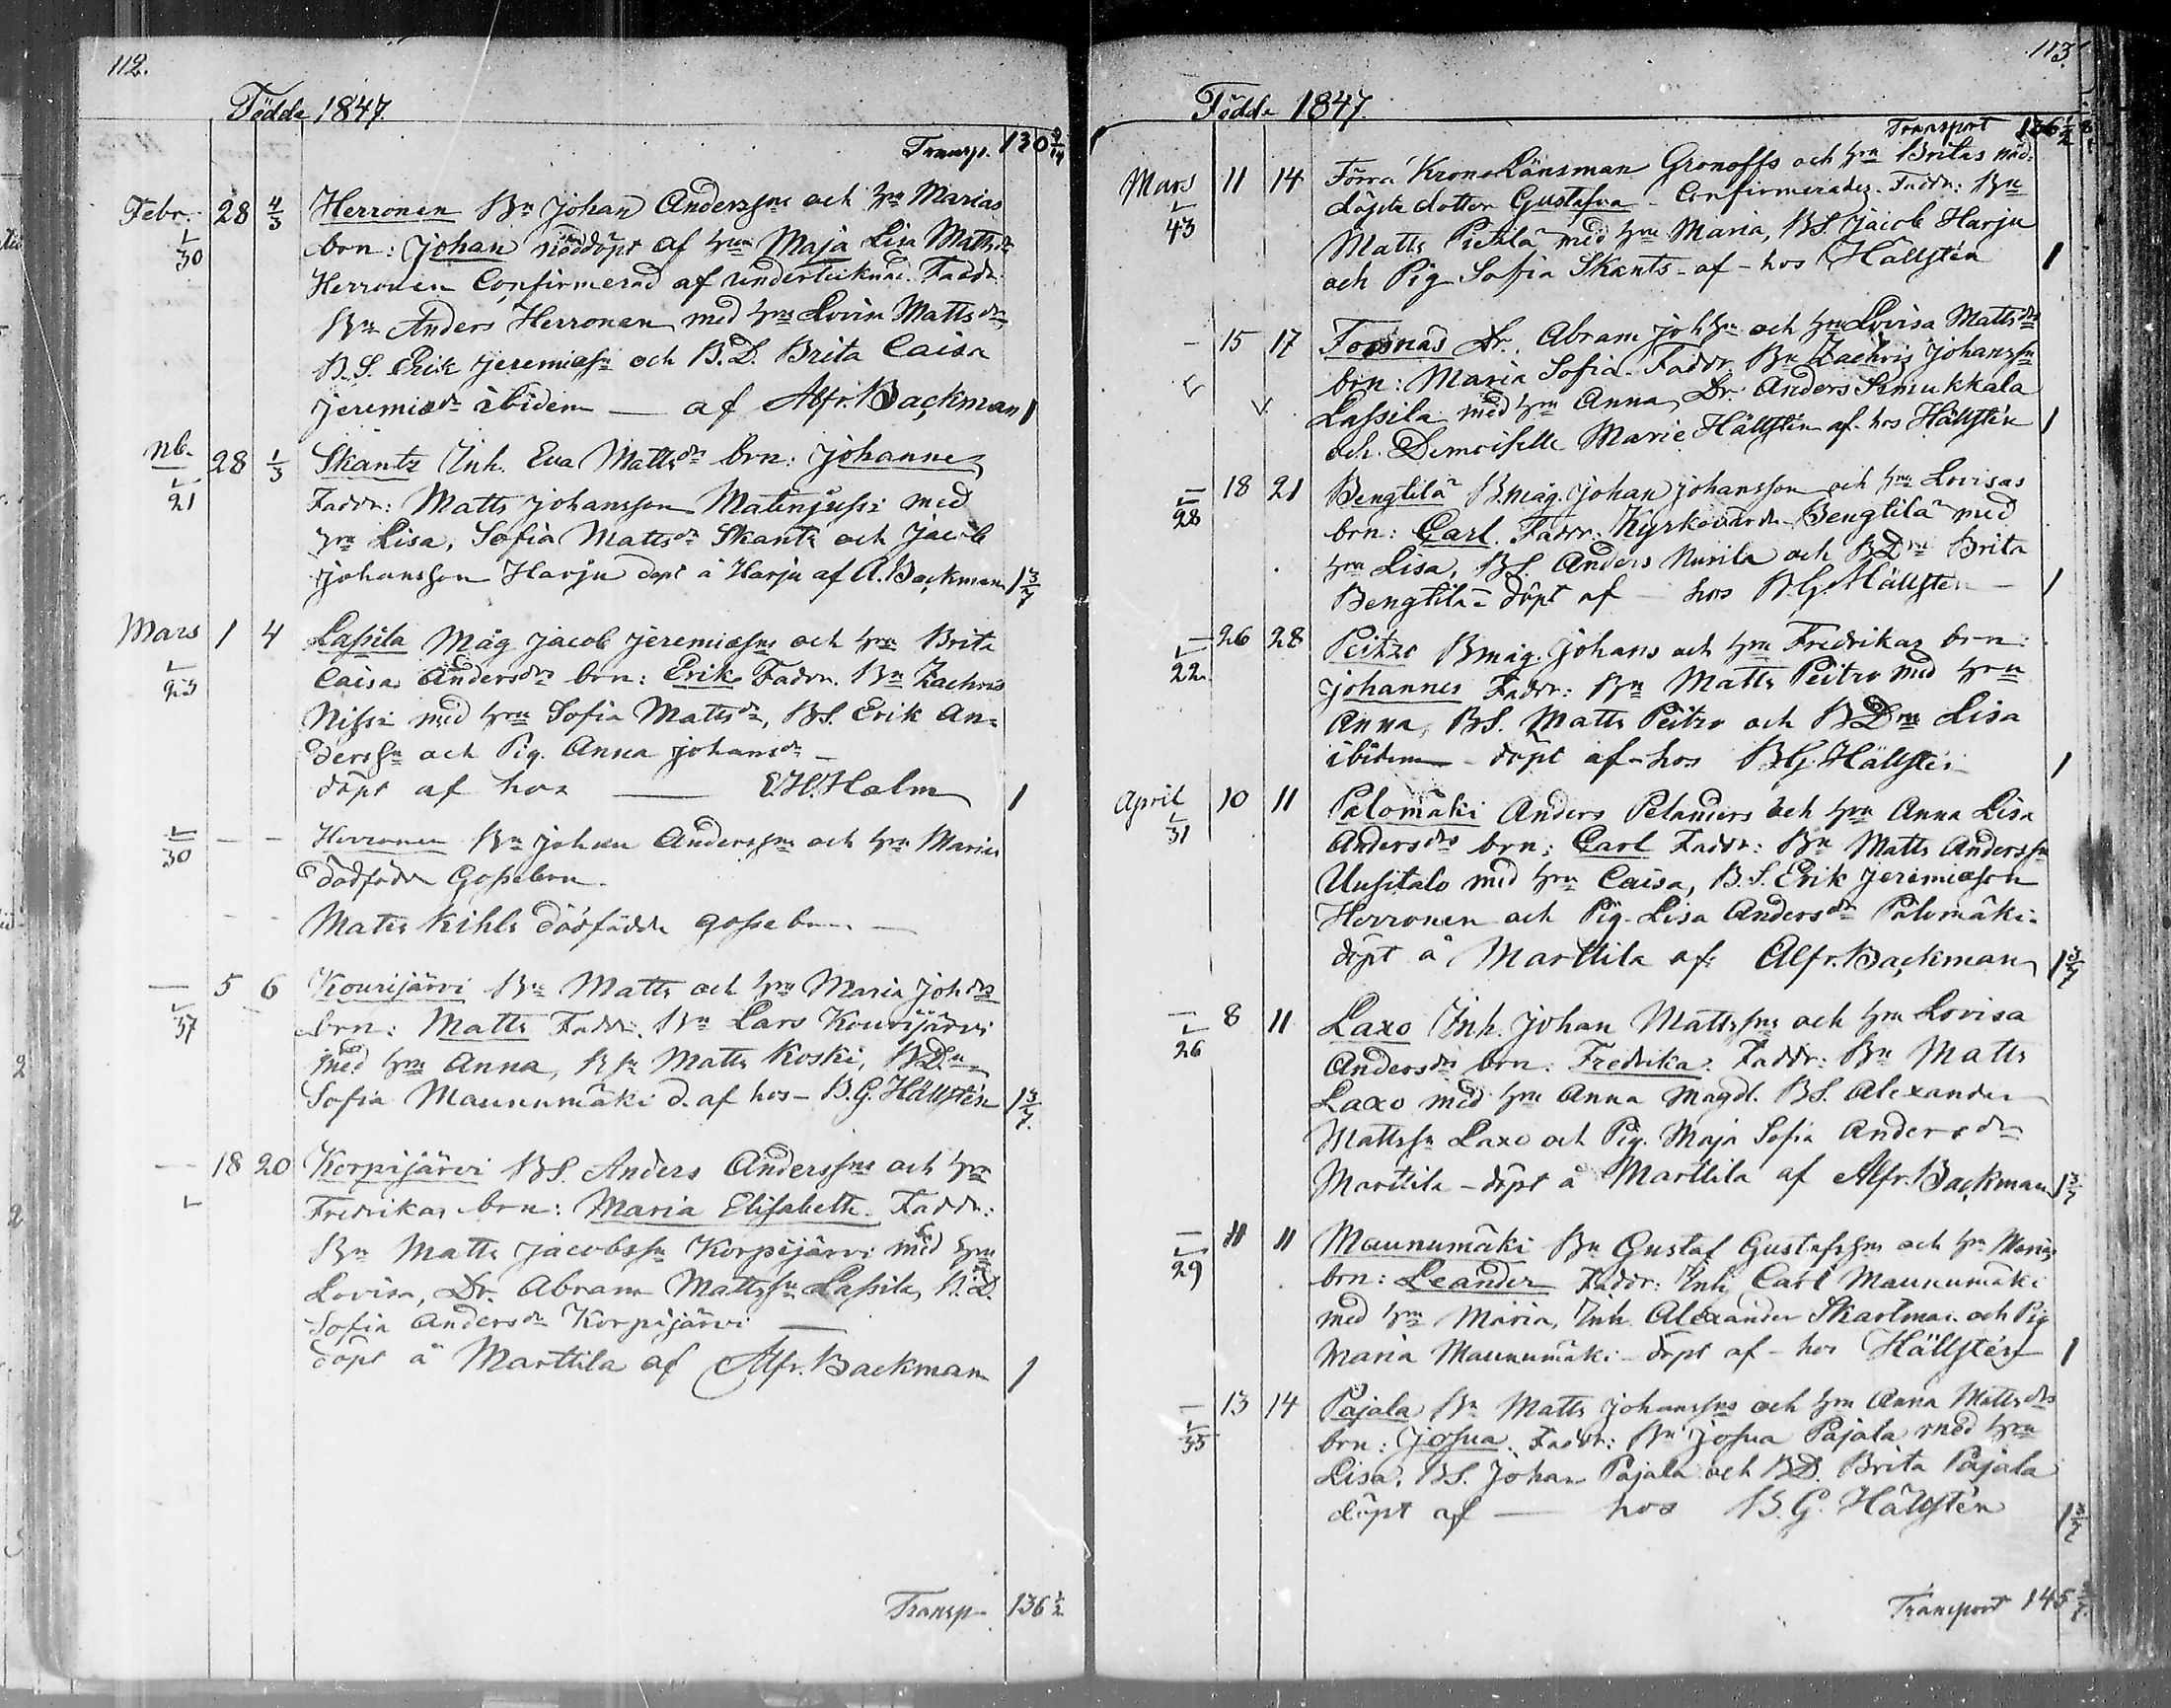 112.
Födde 1847.
Transp. 130 9/14
Febr. 28 4/3 Herronen Bn Johan Anderssns och hru Marias
30 brn: Johan nöddöpt af hru Maja Lisa Mattsdr
Herronen Confirmerad af undertecknad. Faddr:
Bn Anders Herronen med hru Lovisa Mattsdr,
B.S. Erik Jeremiæsn och B.D. Brita Caisa
Jeremiædr ibidem — af Alfr. Backman 1
nb. 28 1/3 Skantz Inh. Eva Mattsdrs brn: Johannes
21 Faddr: Matts Johansson Matinjussi med
hru Lisa, Sofia Mattsdr Skantz och Jacob
Johansson Harju döpt å Harju af A. Backman 1 3/7
Mars 1 4 Lassila Måg Jacob Jeremiæsns och hru Brita
Caisa Andersdrs brn: Erik Faddr. Bn Zachris
Nissi med hru Sofia Mattsdr, BS. Erik An-
derssn och Pig. Anna Johansdr —
döpt af hos — E.H. Holm 1
30 — — Herronen Bn Johan Anderssns och hru Marias
dödfödde Gossebarn.
- - Matts Kihls dödfödde gossebarn —
— 5 6 Kourijärvi Bn Matts och hru Maria Johdrs
37 brn: Matts Faddr. Bn Lars Kourijärvi
med hru Anna, Matts Koski, BDn
Sofia Maunumäki d. af hos — B.G. Hällstén 1 3/7.
— 18 20 Korpijärvi BS. Anders Anderssns och hru
Fredrikas brn: Maria Elisabeth. Faddr:
Bn Matts Jacobssn Korpijärvi med hru
Lovisa, Dr. Abram Mattssn Lassila, B.D.
Sofia Andersdr Korpijärvi —
döpt å Marttila af Alfr. Backman 1
Transp. 136 1/2
113.
Födde 1847.
Transport 136 1/2
Mars 11 14 Förra Krono Länsman Gronoffs och hru Britas nöd-
43 döpta dotter Gustafva — Confirmerades. Faddr: Bn
Matts Pietilä med hru Maria, BS. Jacob Harju
och Pig Sofia Skants — af — hos Hällstén 1
— 15 17 Forsnäs Dr. Abram Johsns och hru Lovisa Mattsdrs
brn: Maria Sofia. Faddr. Bn Zachris Johanssn
Lassila med hru Anna, Dr. Anders Simukkala
och Demoiselle Marie Hällstén af hos Hällstén 1
— 18 21 Bengtilä Bmåg. Johan Johansson och hru Lovisas
28 brn: Carl. Faddr: Kyrkovärden Bengtilä med
hru Lisa, BS. Anders Nurila och BDrn Brita
Bengtilä döpt af — hos B.G. Hällsten — 1
— 26 28 Peitzo Bmåg. Johans och hru Fredrikas brn:
22. Johannes Faddr: Bn Matts Peitzo med hru
Anna, BS. Matts Peitzo och BDrn Lisa
ibidem — döpt af — hos B.G. Hällstén 1
April 10 11 Palomäki Anders Pelanders och hru Anna Lisa
31 Andersdrs brn: Carl Faddr: Bn Matts Anderssn
Uusitalo med hru Caisa, B.S. Erik Jeremiæson
Herronen och Pig. Lisa Andersdr Palomäki
döpt å Marttila af: Alfr. Backman 1 3/7
— 8 11 Laxo Inh. Johan Mattssns och hru Lovisa
26 Andersdrs brn: Fredrika. Faddr: Bn Matts
Laxo med hru Anna Magdl. BS. Alexander
Mattssn Laxo och Pig. Maja Sofia Andersdr
Marttila — döpt å Marttila af Alfr. Backman 1 3/7
— 11 11 Maunumäki Bn Gustaf Gustafssns och hru Marias
29 brn: Leander Faddr: Inh. Carl Maunumäki
med hru Maria, Inh. Alexander Skartman och Pig
Maria Maunumäki — döpt af — hos Hällstén 1
— 13 14 Pajala Bn Matts Johanssns och hru Anna Mattsdrs
35 brn: Josua. Faddr: Bn Josua Pajala med hru
Lisa, BS. Johan Pajala och BD. Brita Pajala
döpt af — hos B.G. Hällstén 1 3/7
Transport 145